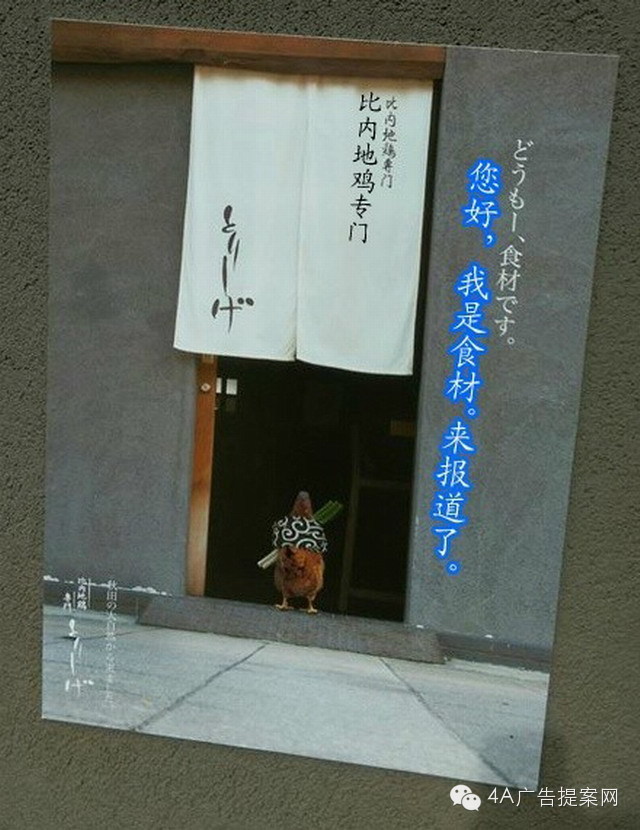 どうもー、食材です。
您好，我是食材。来报道了。
比内地鶏専门
比内地鸡专门
とりしげ
秋田の大自然から来ました。
比内地鶏
専門
とりしげ
4A广告提案网